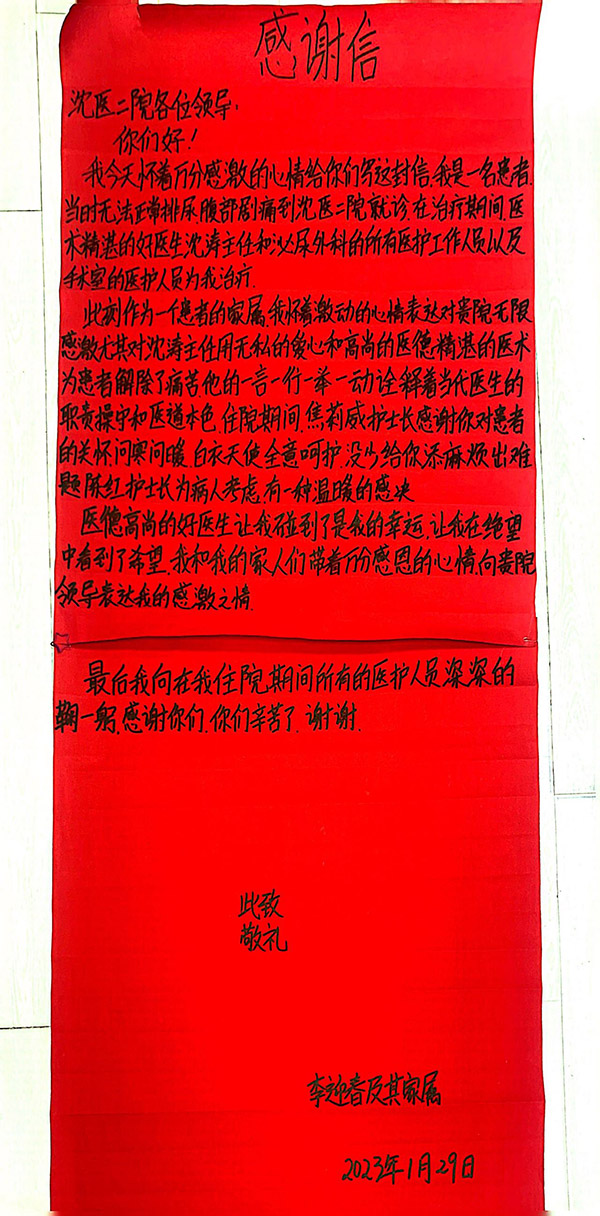 感谢信
沈医二院各位领导:
你们好!
我今天怀着万分感激的心情给你们写这封信.我是一名患者.
当时无法正常排尿腹部剧痛到沈医二院就诊.在治疗期间.医
术精湛的好医生沈涛主任和泌尿外科的所有医护工作人员以及
手术室的医护人员为我治疗.
此刻作为一个患者的家属.我怀着激动的心情表达对贵院无限
感激尤其对沈涛主任用无私的爱心和高尚的医德精湛的医术
为患者解除了痛苦他的一言一行一举一动诠释着当代医生的
职责操守和医道本色.住院期间.焦莉威护士长感谢你对患者
的关怀.问寒问暖.白衣天使全意呵护.没少给你添麻烦出难
题.陈红护士长为病人考虑.有一种温暖的感决
医德高尚的好医生让我碰到了是我的幸运.让我在绝望
中看到了希望.我和我的家人们带着万分感恩的心情.向贵院
领导表达我的感激之情.
最后我向在我住院期间所有的医护人员深深的
鞠一躬.感谢你们.你们辛苦了.谢谢.
此致
敬礼
李迎春及其家属
2023年1月29日